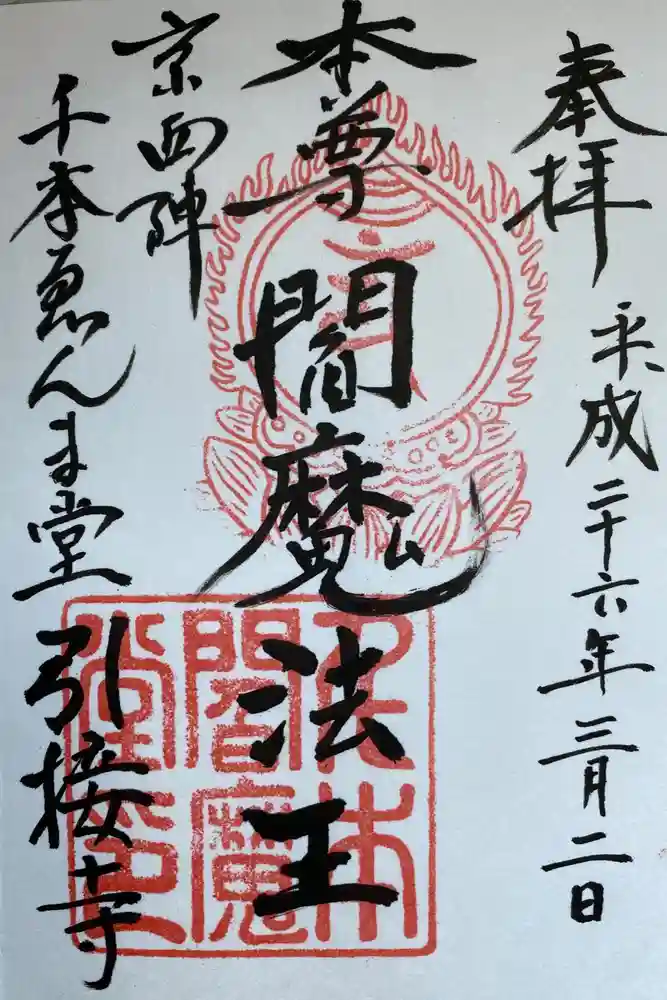 奉拝
平成二十六年三月二日
本尊
閻魔法王
京西陣
千本ゑんま堂
引接寺